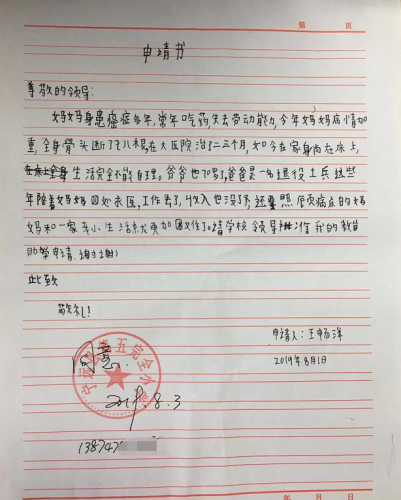 第 页
申请书
尊敬的领导:
妈妈身患癌症多年,常年吃药,失去劳动能力,今年妈妈病情加
重,全身骨头断了七八根,在大医院治了二三个月,如今在家身肉在床上,
生活完全不能自理。爷爷也70多了,爸爸是一名退役士兵,这些
年陪着妈妈四处求医,工作丢了,收入也没了,还要照顾患癌症的妈
妈和一家老小,生活就更加困难了。请学校领导批准我的教育
助学申请 谢谢!
此致
敬礼!
申请人:王畅洋
2019年8月1日
同意
2019.8.3
第五完全小学
138747
年 月 日